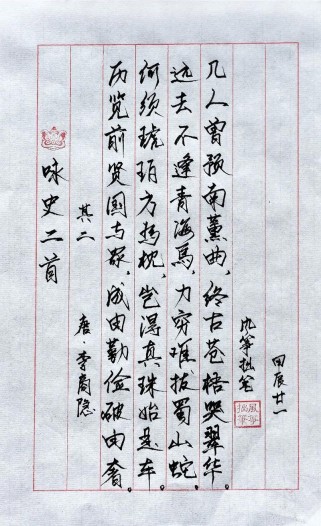 咏史二首
其二 唐·李商隐
历览前贤国与家,成由勤俭破由奢。
何须琥珀方为枕,岂得真珠始是车。
远去不逢青海马,力穷难拔蜀山蛇。
几人曾预南薰曲,终古苍梧哭翠华。
风筝拙笔
甲辰廿一